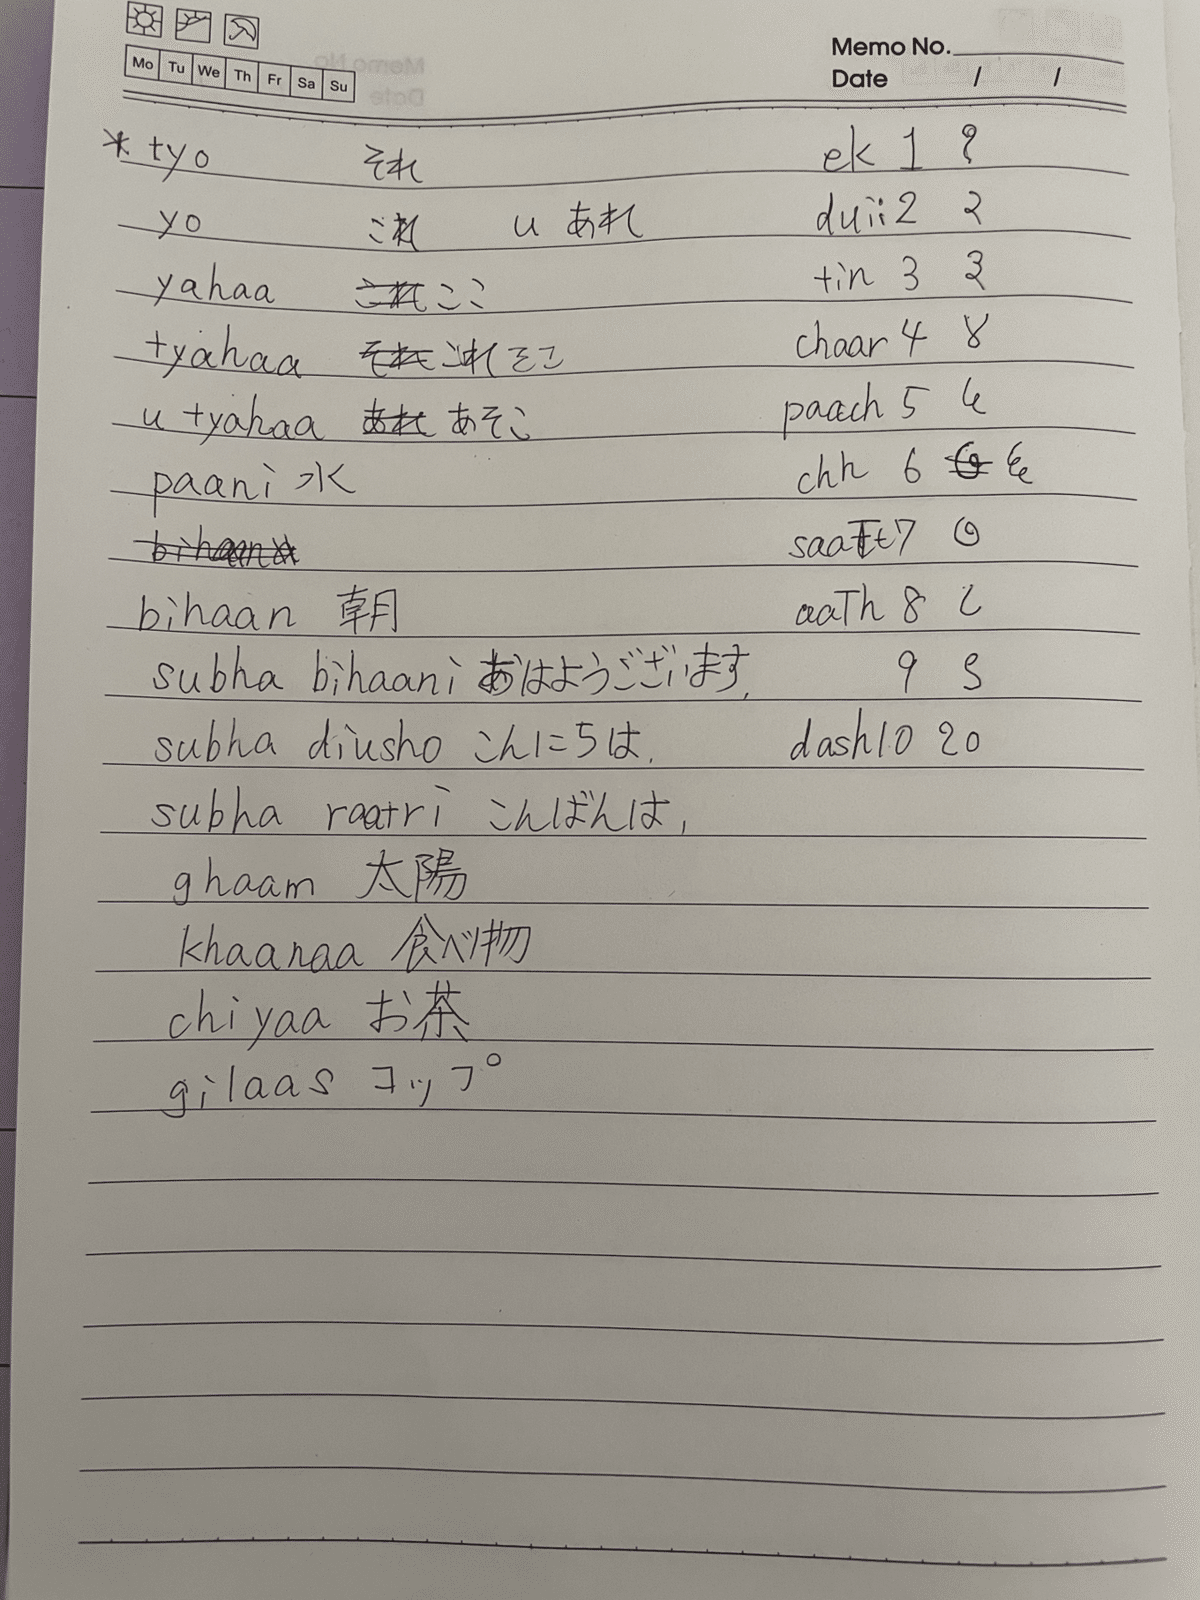 Mo Tu We Th Fr Sa Su
Memo No.
Date / /
* tyo それ ek 1 १
yo これ u あれ duii 2 २
yahaa これ ここ tin 3 ३
tyahaa それ これ そこ chaar 4 ४
u tyahaa あれ あそこ paach 5 ५
paani 水 chh 6 ६
bihaan 朝 aaTh 8 ८
subha bihaani おはようございます. 9 ९
subha diusho こんにちは. dash 10 १०
subha raatri こんばんは,
ghaam 太陽
khaanaa 食べ物
chiyaa お茶
gilaas コップ